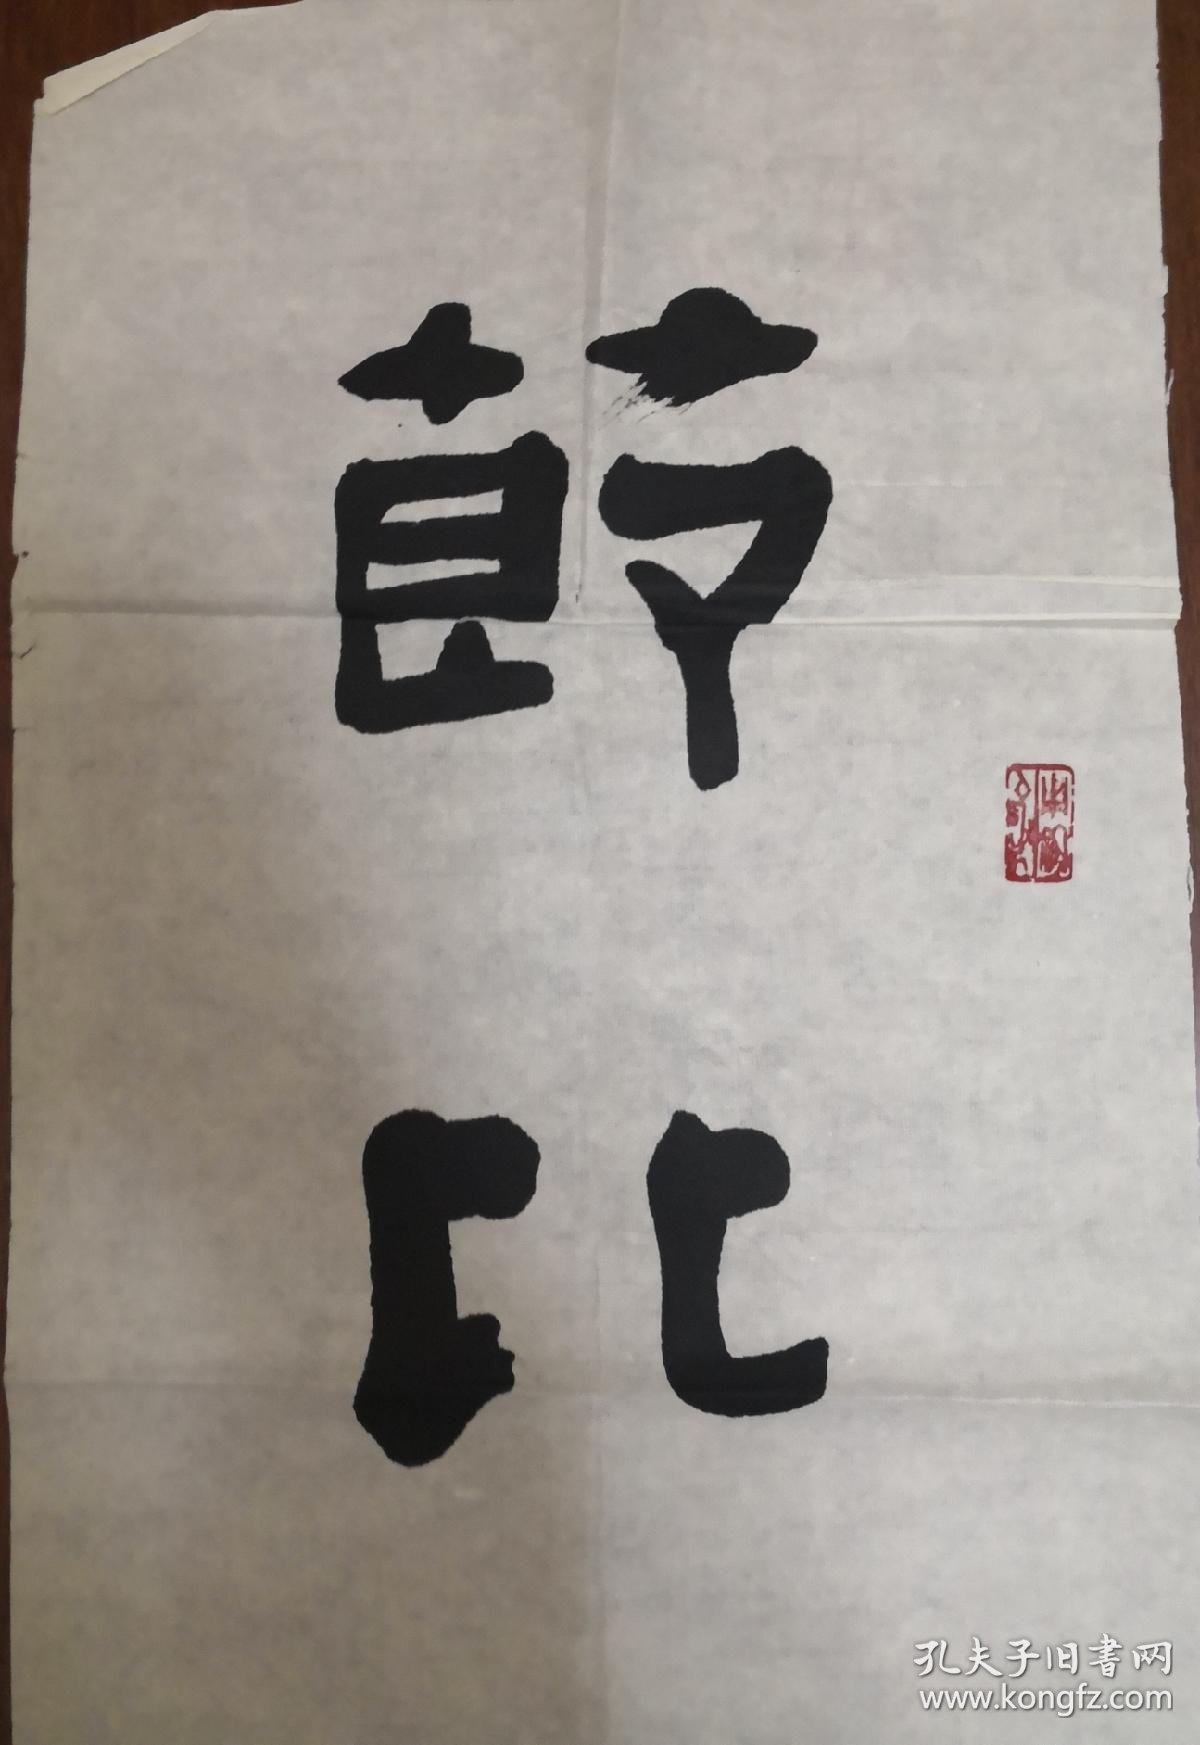 節比
孔夫子旧書网
www.kongfz.com